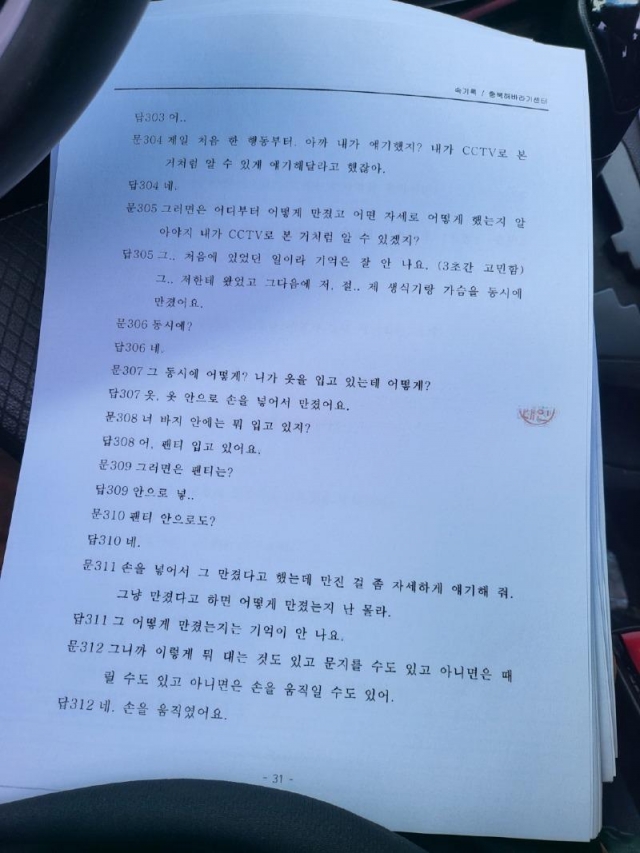 속기록 / 충북해바라기센터
답303 어..
문304 제일 처음 한 행동부터. 아까 내가 얘기했지? 내가 CCTV로 본
거처럼 알 수 있게 얘기해달라고 했잖아.
답304 네.
문305 그러면은 어디부터 어떻게 만졌고 어떤 자세로 어떻게 했는지 알
아야지 내가 CCTV로 본 거처럼 알 수 있겠지?
답305 그.. 처음에 있었던 일이라 기억은 잘 안 나요. (3초간 고민함)
그.. 저한테 왔었고 그다음에 저, 걸.. 제 생식기랑 가슴을 동시에
만졌어요.
문306 동시에?
답306 네.
문307 그 동시에 어떻게? 니가 옷을 입고 있는데 어떻게?
답307 옷, 옷 안으로 손을 넣어서 만졌어요.
문308 너 바지 안에는 뭐 입고 있지?
답308 어, 팬티 입고 있어요.
문309 그러면은 팬티는?
답309 안으로 넣..
문310 팬티 안으로도?
답310 네.
문311 손을 넣어서 그 만졌다고 했는데 만진 걸 좀 자세하게 얘기해 줘.
그냥 만졌다고 하면 어떻게 만졌는지 난 몰라.
답311 그 어떻게 만졌는지는 기억이 안 나요.
문312 그니까 이렇게 뭐 대는 것도 있고 문지를 수도 있고 아니면은 때
릴 수도 있고 아니면은 손을 움직일 수도 있어.
답312 네. 손을 움직였어요.
- 31 -